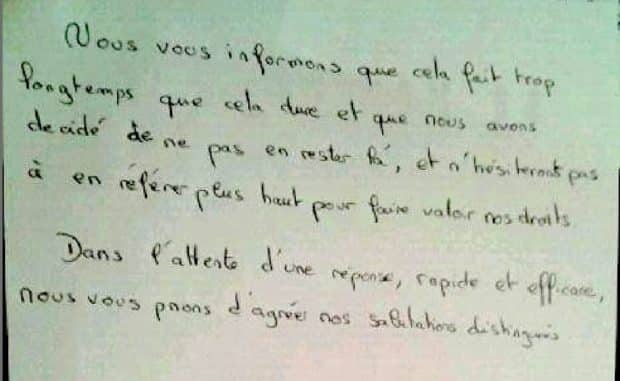 Nous vous informons que cela fait trop
longtemps que cela dure et que nous avons
decidé de ne pas en rester là, et n'hésiteront pas
à en référer plus haut pour faire valoir nos droits.
Dans l'attente d'une réponse, rapide et efficace,
nous vous prions d'agréer nos salutations distingués